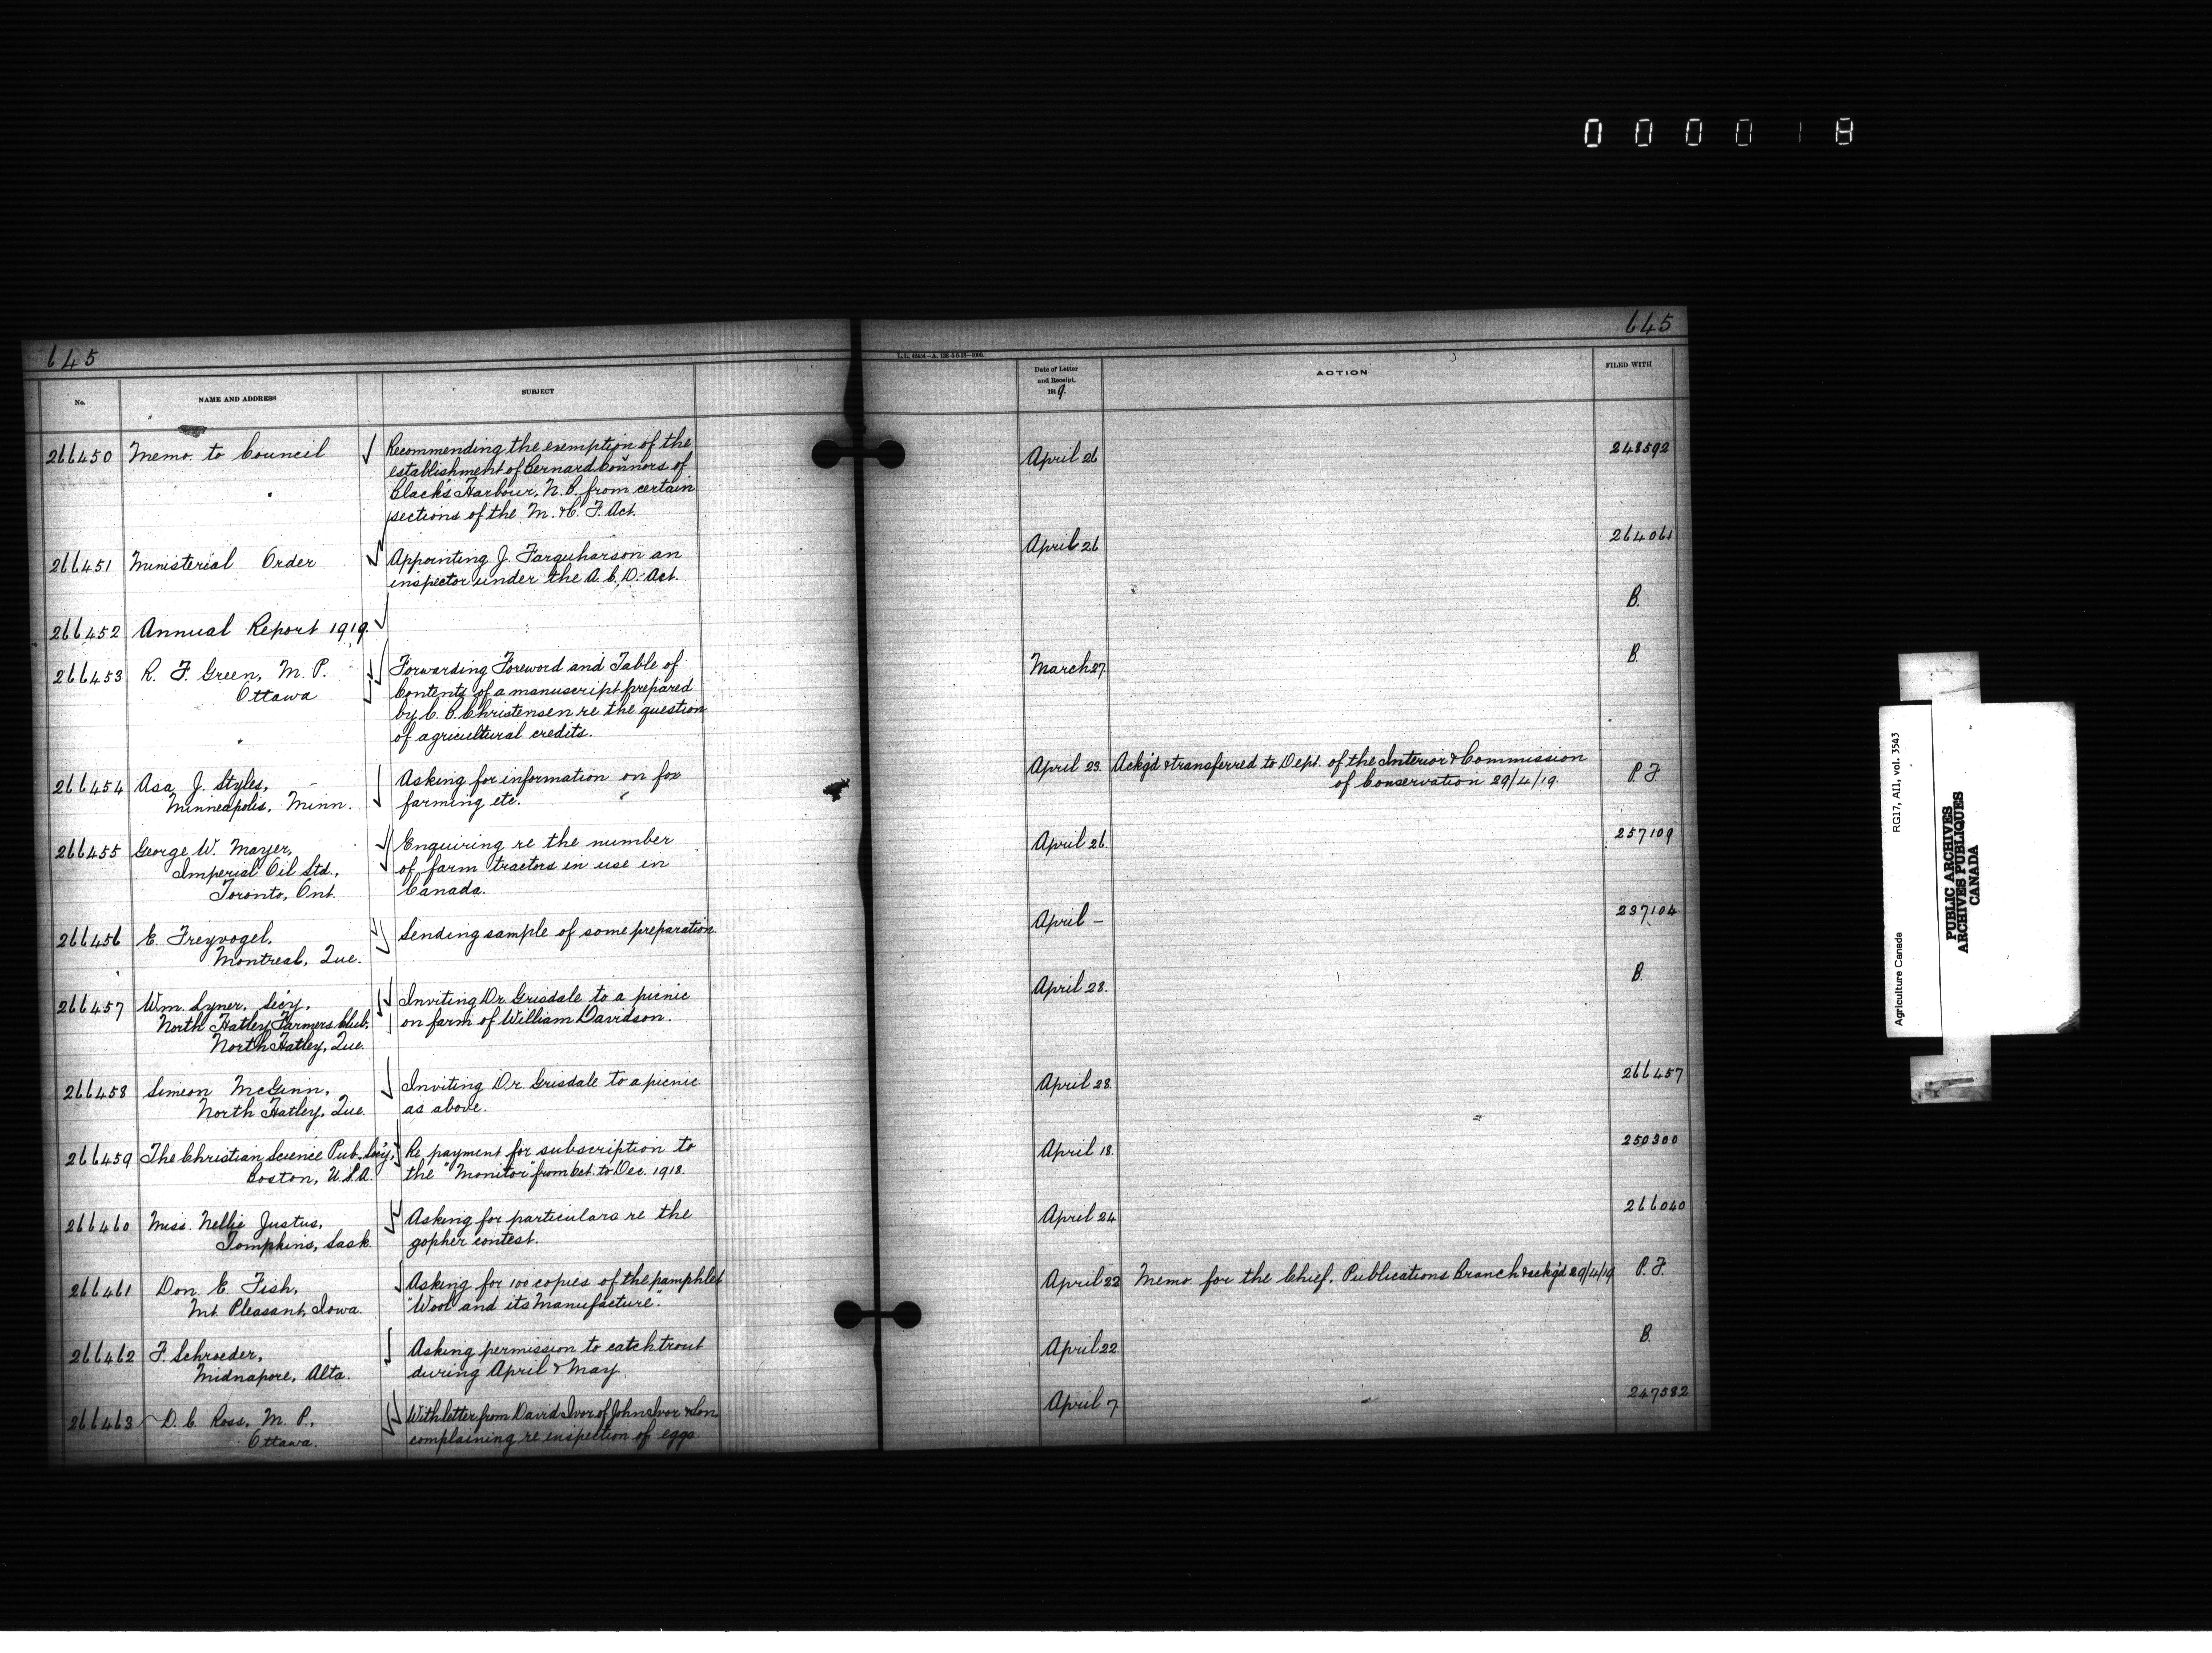 0 0 0 0 1 8
645
No.
NAME AND ADDRESS
SUBJECT
266450 Memo. to Council
Recommending the exemption of the
establishment of Bernard Connors of
Black's Harbour, N. B. from certain
sections of the M. & C. F. Act.
266451 Ministerial Order
Appointing J. Farquharson an
inspector under the A. C. D. Act.
266452 Annual Report 1919.
266453 R. F. Green, M. P.
Ottawa
Forwarding Foreword and Table of
Contents of a manuscript prepared
by C. B. Christensen re the question
of agricultural credits.
266454 Asa J. Styles,
Minneapolis, Minn.
Asking for information on fox
farming etc.
266455 George W. Mayer,
Imperial Oil Ltd.,
Toronto, Ont.
Enquiring re the number
of farm tractors in use in
Canada.
266456 E. Freyvogel,
Montreal, Que.
Sending sample of some preparation.
266457 Wm. Lyner, Sec'y,
North Hatley Farmers Club,
North Hatley, Que.
Inviting Dr. Grisdale to a picnic
on farm of William Davidson.
266458 Simeon McGinn,
North Hatley, Que.
Inviting Dr. Grisdale to a picnic
as above.
266459 The Christian Science Pub. Soc'y,
Boston, U.S.A.
Re payment for subscription to
the "Monitor" from Oct. to Dec. 1918.
266460 Miss. Nellie Justus,
Tompkins, Sask.
Asking for particulars re the
gopher contest.
266461 Don E. Fish,
Mt. Pleasant, Iowa.
Asking for 100 copies of the pamphlet
"Wool and its Manufacture".
266462 F. Schroeder,
Midnapore, Alta.
Asking permission to catch trout
during April & May
266463 D. C. Ross, M. P.,
Ottawa.
With letter from David Ivor of John Ivor & Son
complaining re inspection of eggs.
645
Date of Letter
and Receipt,
1919.
ACTION
FILED WITH
April 26
248592
April 26
264061
B.
March 27.
B.
April 23. Ackg'd & transferred to Dept. of the Interior & Commission
of Conservation 29/4/19.
P. F.
April 26.
257109
April –
237104
April 28.
B.
April 28.
266457
April 18.
250300
April 24
266040
April 22 Memo. for the Chief, Publications Branch & ackg'd 29/4/19
P. F.
April 22
B.
April 7
247582
Agriculture Canada
RG17, AI1, vol. 3543
PUBLIC ARCHIVES
ARCHIVES PUBLIQUES
CANADA